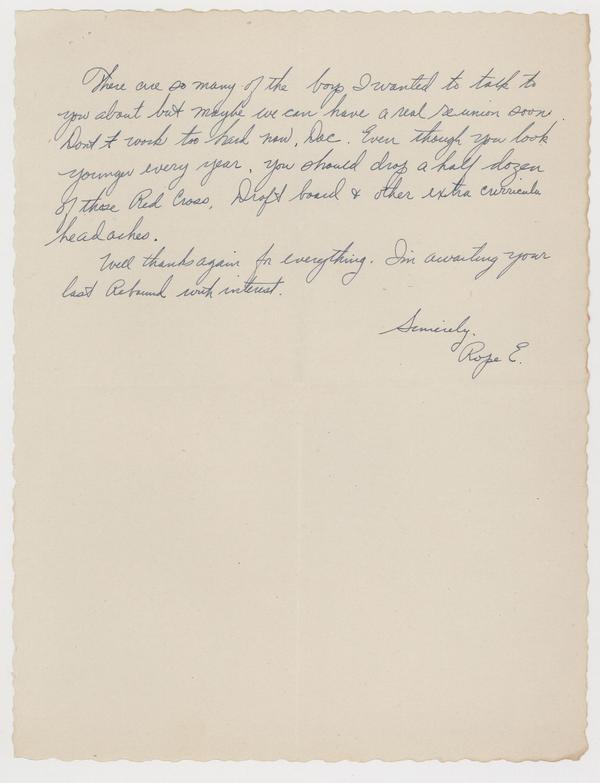 There are so many of the boys I wanted to talk to
you about but maybe we can have a real reunion soon.
Don't work too hard now, Doc. Even though you look
younger every year, you should drop a half dozen
of those Red Cross, Draft board & other extra curricula
headaches.
Well thanks again for everything. I'm awaiting your
last Rebound with interest.
Sincerely,
Rope E.